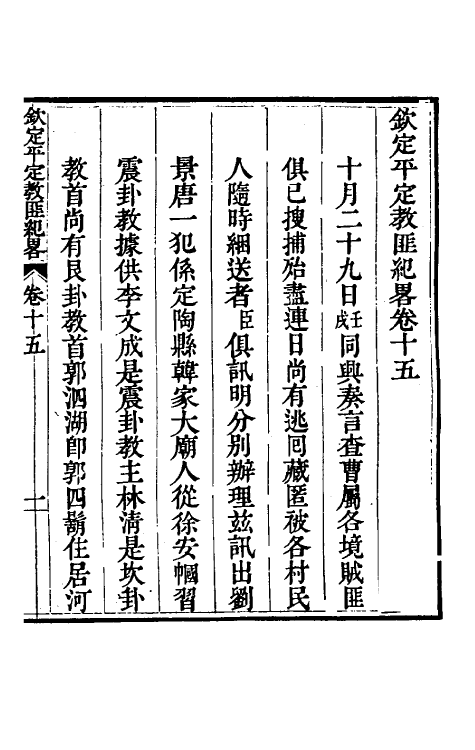 欽定平定教匪紀畧卷十五
十月二十九日壬戌同興奏言查曹屬各境賊匪
俱已搜捕殆盡連日尚有逃回藏匿被各村民
人隨時綑送者臣俱訊明分別辦理茲訊出劉
景唐一犯係定陶縣韓家大廟人從徐安幗習
震卦教據供李文成是震卦教主林清是坎卦
教首尚有艮卦教首郭泗湖卽郭四鬍住居河
欽定平定教匪紀畧 卷十五 一